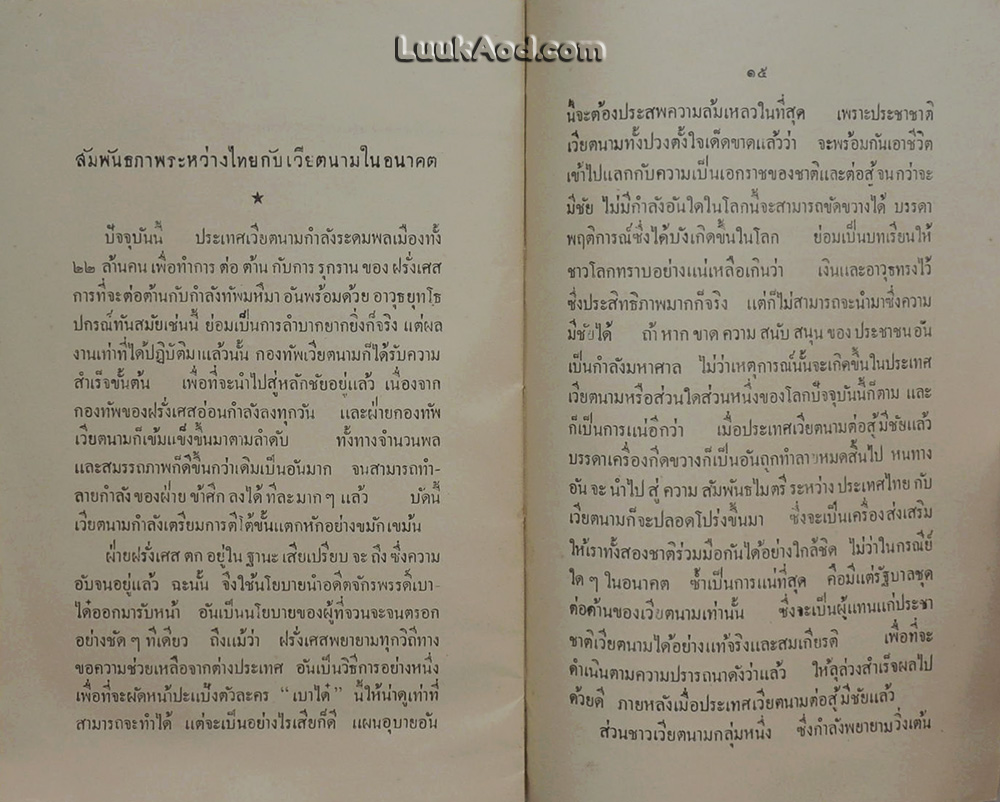 LuukAod.com
สัมพันธภาพระหว่างไทยกับเวียตนามในอนาคต
★
ปัจจุบันนี้ ประเทศเวียตนามกำลังระดมพลเมืองทั้ง
๒๒ ล้านคน เพื่อทำการ ต่อ ต้าน กับการ รุกราน ของ ฝรั่งเศส
การที่จะต่อต้านกับกำลังทัพมหึมา อันพร้อมด้วย อาวุธยุทโธ
ปกรณ์ทันสมัยเช่นนี้ ย่อมเป็นการลำบากยากยิ่งก็จริง แต่ผล
งานเท่าที่ได้ปฏิบัติมาแล้วนั้น กองทัพเวียตนามก็ได้รับความ
สำเร็จขั้นต้น เพื่อที่จะนำไปสู่หลักชัยอยู่แล้ว เนื่องจาก
กองทัพของฝรั่งเศสอ่อนกำลังลงทุกวัน และฝ่ายกองทัพ
เวียตนามก็เข้มแข็งขึ้นมาตามลำดับ ทั้งทางจำนวนพล
และสมรรถภาพก็ดีขึ้นกว่าเดิมเป็นอันมาก จนสามารถทำ-
ลายกำลัง ของฝ่าย ข้าศึก ลงได้ ทีละ มาก ๆ แล้ว บัดนี้
เวียตนามกำลังเตรียมการตีโต้ขั้นแตกหักอย่างขมักเขม้น
ฝ่ายฝรั่งเศส ตก อยู่ใน ฐานะ เสียเปรียบ จะ ถึง ซึ่งความ
อับจนอยู่แล้ว ฉะนั้น จึงใช้นโยบายนำอดีตจักรพรรดิ์เบา-
ได๋ออกมารับหน้า อันเป็นนโยบายของผู้ที่จวนจะจนตรอก
อย่างชัด ๆ ทีเดียว ถึงแม้ว่า ฝรั่งเศสพยายามทุกวิถีทาง
ขอความช่วยเหลือจากต่างประเทศ อันเป็นวิธีการอย่างหนึ่ง
เพื่อที่จะผัดหน้าปะแป้งตัวละคร “ เบาได๋ ” นี้ให้น่าดูเท่าที่
สามารถจะทำได้ แต่จะเป็นอย่างไรเสียก็ดี แผนอุบายอัน
๑๕
นี้จะต้องประสพความล้มเหลวในที่สุด เพราะประชาชาติ
เวียตนามทั้งปวงตั้งใจเด็ดขาดแล้วว่า จะพร้อมกันเอาชีวิต
เข้าไปแลกกับความเป็นเอกราชของชาติและต่อสู้จนกว่าจะ
มีชัย ไม่มีกำลังอันใดในโลกนี้จะสามารถขัดขวางได้ บรรดา
พฤติการณ์ซึ่งได้บังเกิดขึ้นในโลก ย่อมเป็นบทเรียนให้
ชาวโลกทราบอย่างแน่เหลือเกินว่า เงินและอาวุธทรงไว้
ซึ่งประสิทธิภาพมากก็จริง แต่ก็ไม่สามารถจะนำมาซึ่งความ
มีชัยได้ ถ้า หาก ขาด ความ สนับ สนุน ของ ประชาชน อัน
เป็นกำลังมหาศาล ไม่ว่าเหตุการณ์นั้นจะเกิดขึ้นในประเทศ
เวียตนามหรือส่วนใดส่วนหนึ่งของโลกปัจจุบันนี้ก็ตาม และ
ก็เป็นการแน่อีกว่า เมื่อประเทศเวียตนามต่อสู้มีชัยแล้ว
บรรดาเครื่องกีดขวางก็เป็นอันถูกทำลายหมดสิ้นไป หนทาง
อัน จะ นำไป สู่ ความ สัมพันธไมตรี ระหว่าง ประเทศไทย กับ
เวียตนามก็จะปลอดโปร่งขึ้นมา ซึ่งจะเป็นเครื่องส่งเสริม
ให้เราทั้งสองชาติร่วมมือกันได้อย่างใกล้ชิด ไม่ว่าในกรณีย์
ใด ๆ ในอนาคต ซ้ำเป็นการแน่ที่สุด คือมีแต่รัฐบาลชุด
ต่อต้านของเวียตนามเท่านั้น ซึ่งจะเป็นผู้แทนแก่ประชา
ชาติเวียตนามได้อย่างแท้จริงและสมเกียรติ เพื่อที่จะ
ดำเนินตามความปรารถนาดังว่าแล้ว ให้ลุล่วงสำเร็จผลไป
ด้วยดี ภายหลังเมื่อประเทศเวียตนามต่อสู้มีชัยแล้ว
ส่วนชาวเวียตนามกลุ่มหนึ่ง ซึ่งกำลังพยายามวิ่งเต้น